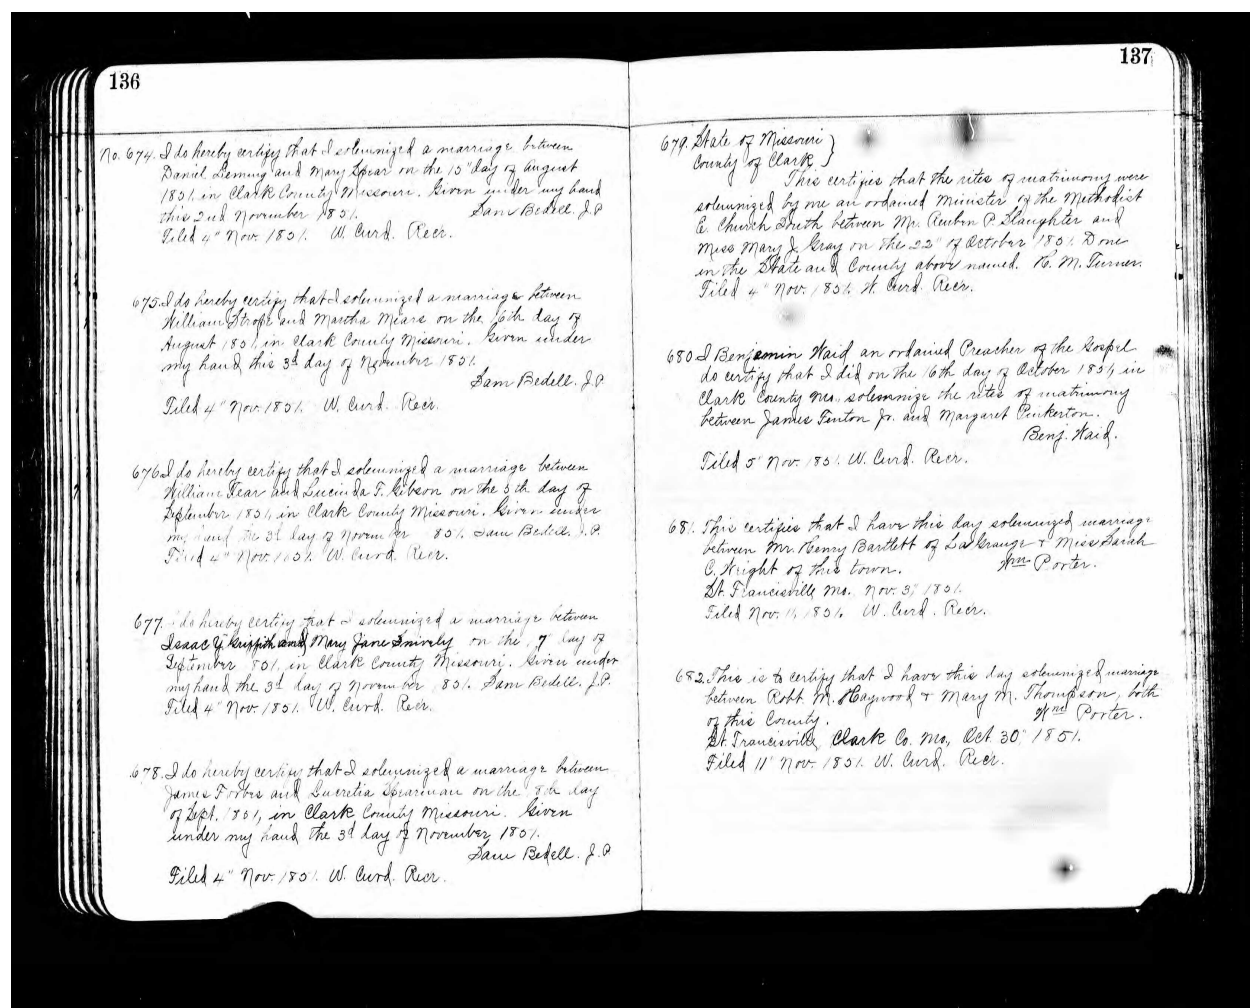 136
No. 674. I do hereby certify that I solemnized a marriage between
Daniel Leming and Mary Spear on the 15" day of August
1851 in Clark County Missouri. Given under my hand
this 2nd November 1851. Sam Bedell. J.P.
Filed 4" Nov. 1851. W. Curd. Recr.
675. I do hereby certify that I solemnized a marriage between
William Strope and Martha Mears on the 16th day of
August 1851, in Clark County Missouri. Given under
my hand this 3d day of November 1851.
Sam Bedell. J.P.
Filed 4" Nov. 1851. W. Curd. Recr.
676. I do hereby certify that I solemnized a marriage between
William Fear and Lucinda T. Gibson on the 5th day of
September 1851, in Clark County Missouri. Given under
my hand the 3d day of November 1851. Sam Bedell. J.P.
Filed 4" Nov. 1851. W. Curd. Recr.
677. I do hereby certify that I solemnized a marriage between
Isaac Y. Griffith and Mary Jane Snively on the 7" day of
September 1851. in Clark County Missouri. Given under
my hand the 3d day of November 1851. Sam Bedell. J.P.
Filed 4" Nov. 1851. W. Curd. Recr.
678. I do hereby certify that I solemnized a marriage between
James Forbes and Lucretia Spearman on the 8th day
of Sept. 1851, in Clark County Missouri. Given
under my hand the 3d day of November, 1851.
Sam Bedell. J.P.
Filed 4" Nov. 1851. W. Curd. Recr.
137
679. State of Missouri }
County of Clark }
This certifies that the rites of matrimony were
solemnized by me an ordained Minister of the Methodist
E. Church South between Mr. Reuben P. Slaughter and
Miss Mary J. Gray on the 22" of October 1851. Done
in the State and County above named. H. M. Turner.
Filed 4" Nov. 1851. W. Curd. Recr.
680. I Benjamin Waid an ordained Preacher of the Gospel
do certify that I did on the 16th day of October 1851, in
Clark County Mo., solemnize the rites of matrimony
between James Fenton Jr. and Margaret Pinkerton.
Benj. Waid.
Filed 5" Nov. 1851. W. Curd. Recr.
681. This certifies that I have this day solemnized marriage
between Mr. Henry Bartlett of La Grange & Miss Sarah
C. Wright of this town. Wm Porter.
St. Francisville, Mo. Nov. 3, 1851.
Filed Nov. 11, 1851. W. Curd. Recr.
682. This is to certify that I have this day solemnized marriage
between Robt. M. Haywood & Mary M. Thompson, both
of this County. Wm Porter.
St. Francisville, Clark Co. Mo., Oct. 30" 1851.
Filed 11" Nov. 1851. W. Curd. Recr.